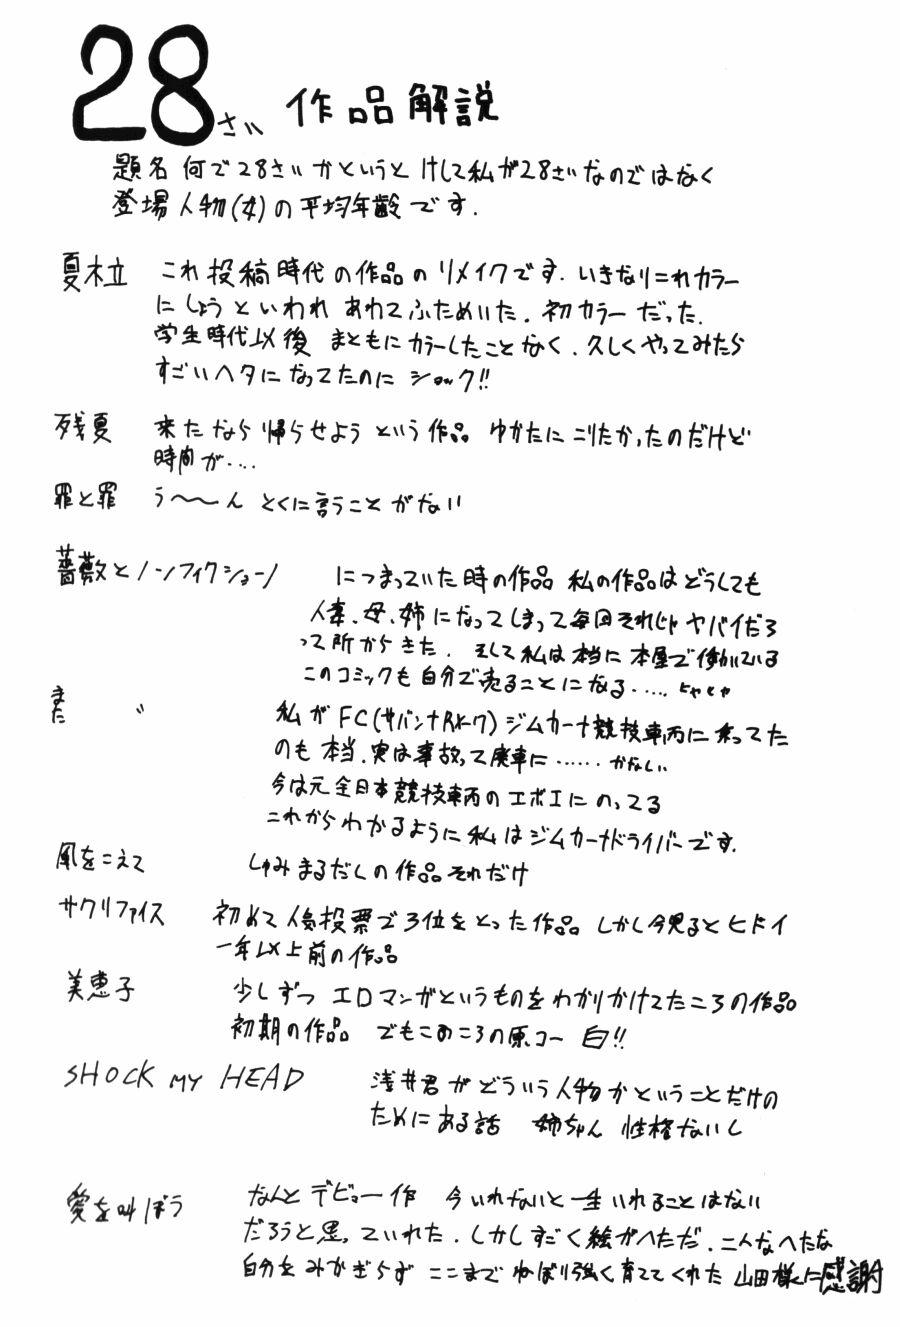 28さい 作品解説
題名 何で28さいかというと けして私が28さいなのではなく
登場人物(女)の平均年齢です.
夏木立 これ投稿時代の作品のリメイクです. いきなりこれカラー
にしようといわれ あわてふためいた. 初カラーだった.
学生時代以後 まともにカラーしたことなく. 久しくやってみたら
すごいヘタになってたのに ショック!!
残夏 来たなら帰らせようという作品 ゆかたにこりたかったのだけど
時間が....
罪と罪 う〜〜ん とくに言うことがない
薔薇とノンフィクション につまっていた時の作品 私の作品はどうしても
人妻、母、姉になってしまって毎回それじゃヤバイだろ
って所からきた. そして私は本当に本屋で働いている
このコミックも自分で売ることになる..... ヒャヒャ
また 〃 私がFC(サバンナRX-7)ジムカーナ競技車両に乗ってた
のも本当. 実は事故って廃車に...... かなしい
今は元全日本競技車両のエボIにのってる
これからわかるように私はジムカーナドライバーです.
風をこえて しゅみまるだしの作品それだけ
サクリファイス 初めて人気投票で3位をとった作品 しかし今見るとヒドイ
一年以上前の作品
美恵子 少しずつ エロマンガというものをわかりかけてたころの作品
初期の作品 でもこのころの原コー 白!!
SHOCK MY HEAD 浅井君がどういう人物かということだけの
ためにある話 姉ちゃん 性格ないし
愛を叫ぼう なんとデビュー作 今いれないと一生いれることはない
だろうと思っていれた. しかしすごく絵がへただ. こんなへたな
自分をみかぎらず ここまでねばり強く育ててくれた 山田様に感謝